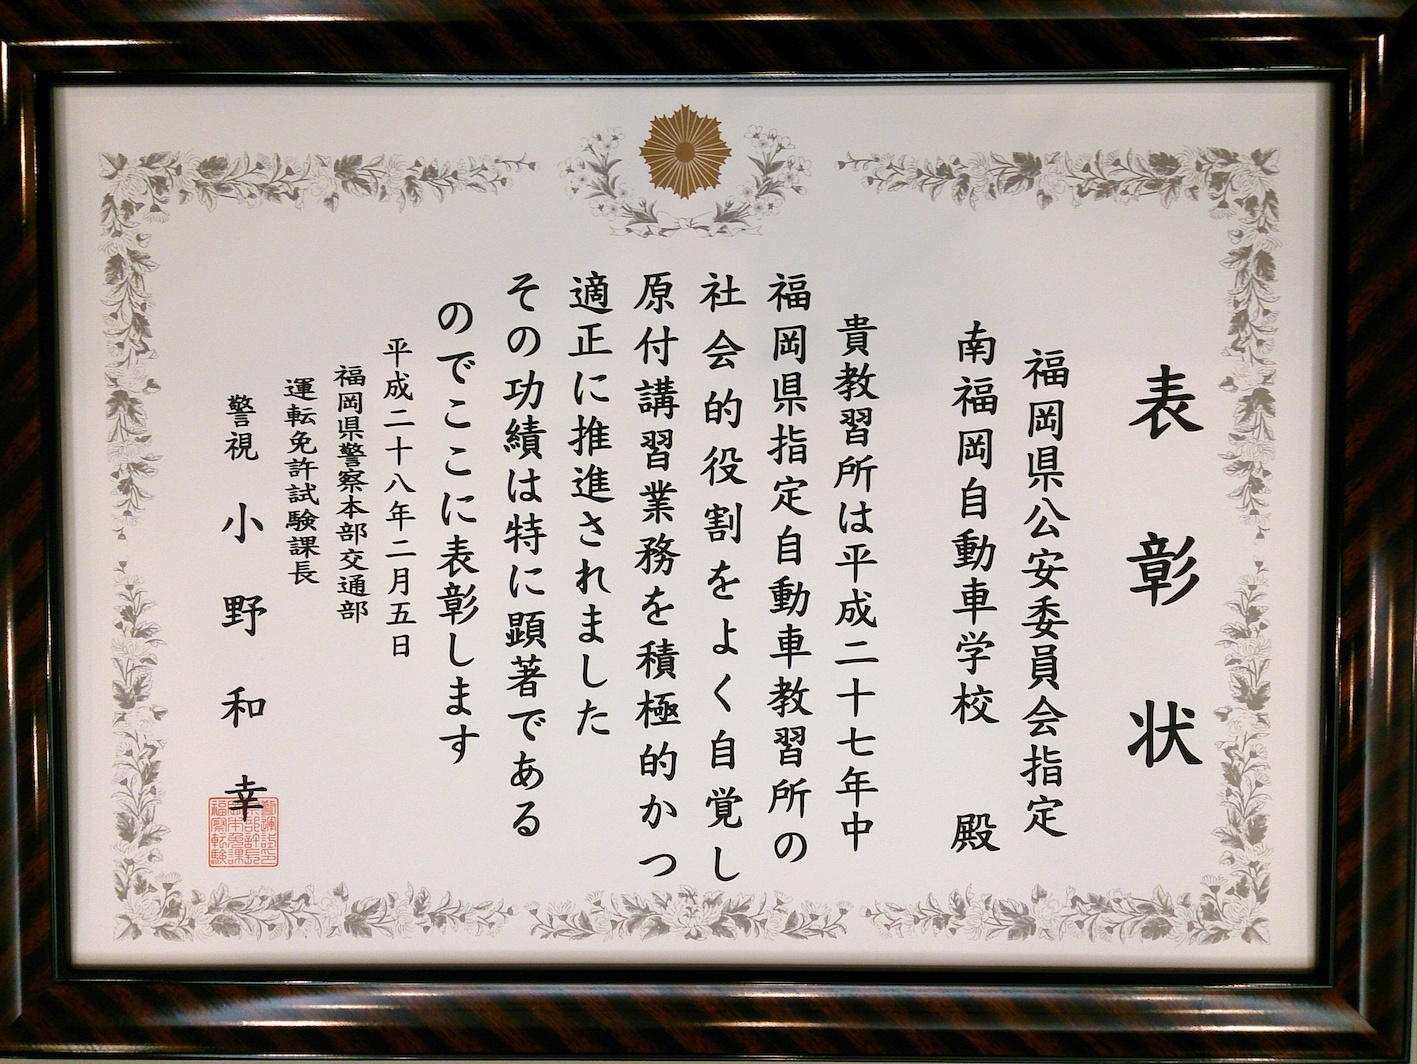 表彰状
福岡県公安委員会指定
南福岡自動車学校 殿
貴教習所は平成二十七年中
福岡県指定自動車教習所の
社会的役割をよく自覚し
原付講習業務を積極的かつ
適正に推進されました
その功績は特に顕著である
のでここに表彰します
平成二十八年二月五日
福岡県警察本部交通部
運転免許試験課長
警視 小野和幸